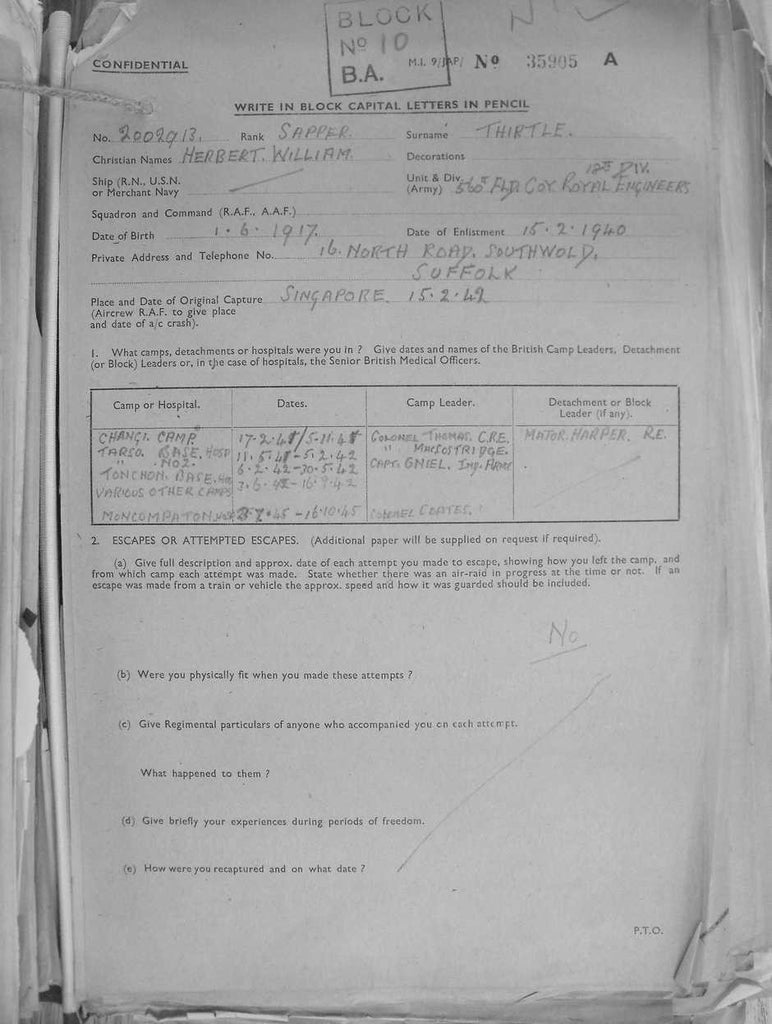 BLOCK
No 10
B.A.
CONFIDENTIAL
M.I. 9/JAP/ No 35905 A
WRITE IN BLOCK CAPITAL LETTERS IN PENCIL
No. 2002913. Rank SAPPER. Surname THIRTLE.
Christian Names HERBERT. WILLIAM. Decorations
Ship (R.N., U.S.N. or Merchant Navy
Unit & Div. (Army) 560 FLD COY ROYAL ENGINEERS DIV.
Squadron and Command (R.A.F., A.A.F.)
Date of Birth 1.6.1917. Date of Enlistment 15.2.1940
Private Address and Telephone No. 16. NORTH ROAD. SOUTHWOLD.
SUFFOLK
Place and Date of Original Capture SINGAPORE. 15.2.42
(Aircrew R.A.F. to give place
and date of a/c crash).
1. What camps, detachments or hospitals were you in ? Give dates and names of the British Camp Leaders, Detachment
(or Block) Leaders or, in the case of hospitals, the Senior British Medical Officers.
Camp or Hospital. Dates. Camp Leader. Detachment or Block
Leader (if any).
CHANGI. CAMP. COLONEL THOMAS. C.R.E. MAJOR. HARPER. R.E.
TARSO. BASE. HOSP
" NO2. 6.2.42-30.5.42 CAPT.
TONCHON. BASE.
VARIOUS OTHER CAMPS
-16.10.45 COLONEL COATES.
2. ESCAPES OR ATTEMPTED ESCAPES. (Additional paper will be supplied on request if required).
(a) Give full description and approx. date of each attempt you made to escape, showing how you left the camp, and
from which camp each attempt was made. State whether there was an air-raid in progress at the time or not. If an
escape was made from a train or vehicle the approx. speed and how it was guarded should be included.
No
(b) Were you physically fit when you made these attempts ?
(c) Give Regimental particulars of anyone who accompanied you on each attempt.
What happened to them ?
(d) Give briefly your experiences during periods of freedom.
(e) How were you recaptured and on what date ?
P.T.O.